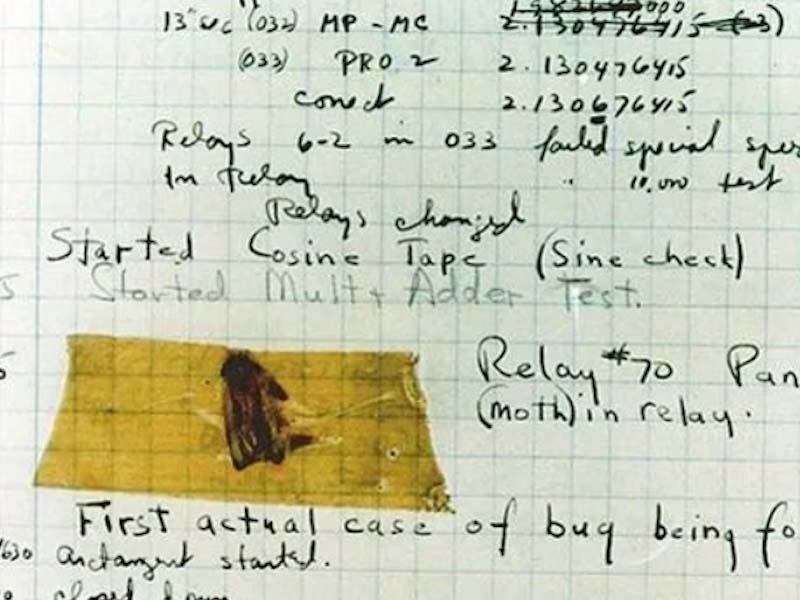 13" uc (032) MP - MC 2.130476415
(033) PRO 2 2.130476415
conect 2.130676415
Relays 6-2 in 033 failed special spee
In Relay " 10.000 test
Relays changed
Started Cosine Tape (Sine check)
Started Mult + Adder Test.
Relay #70 Pan
(moth) in relay.
First actual case of bug being fo
1630 arctangent started.
closed down